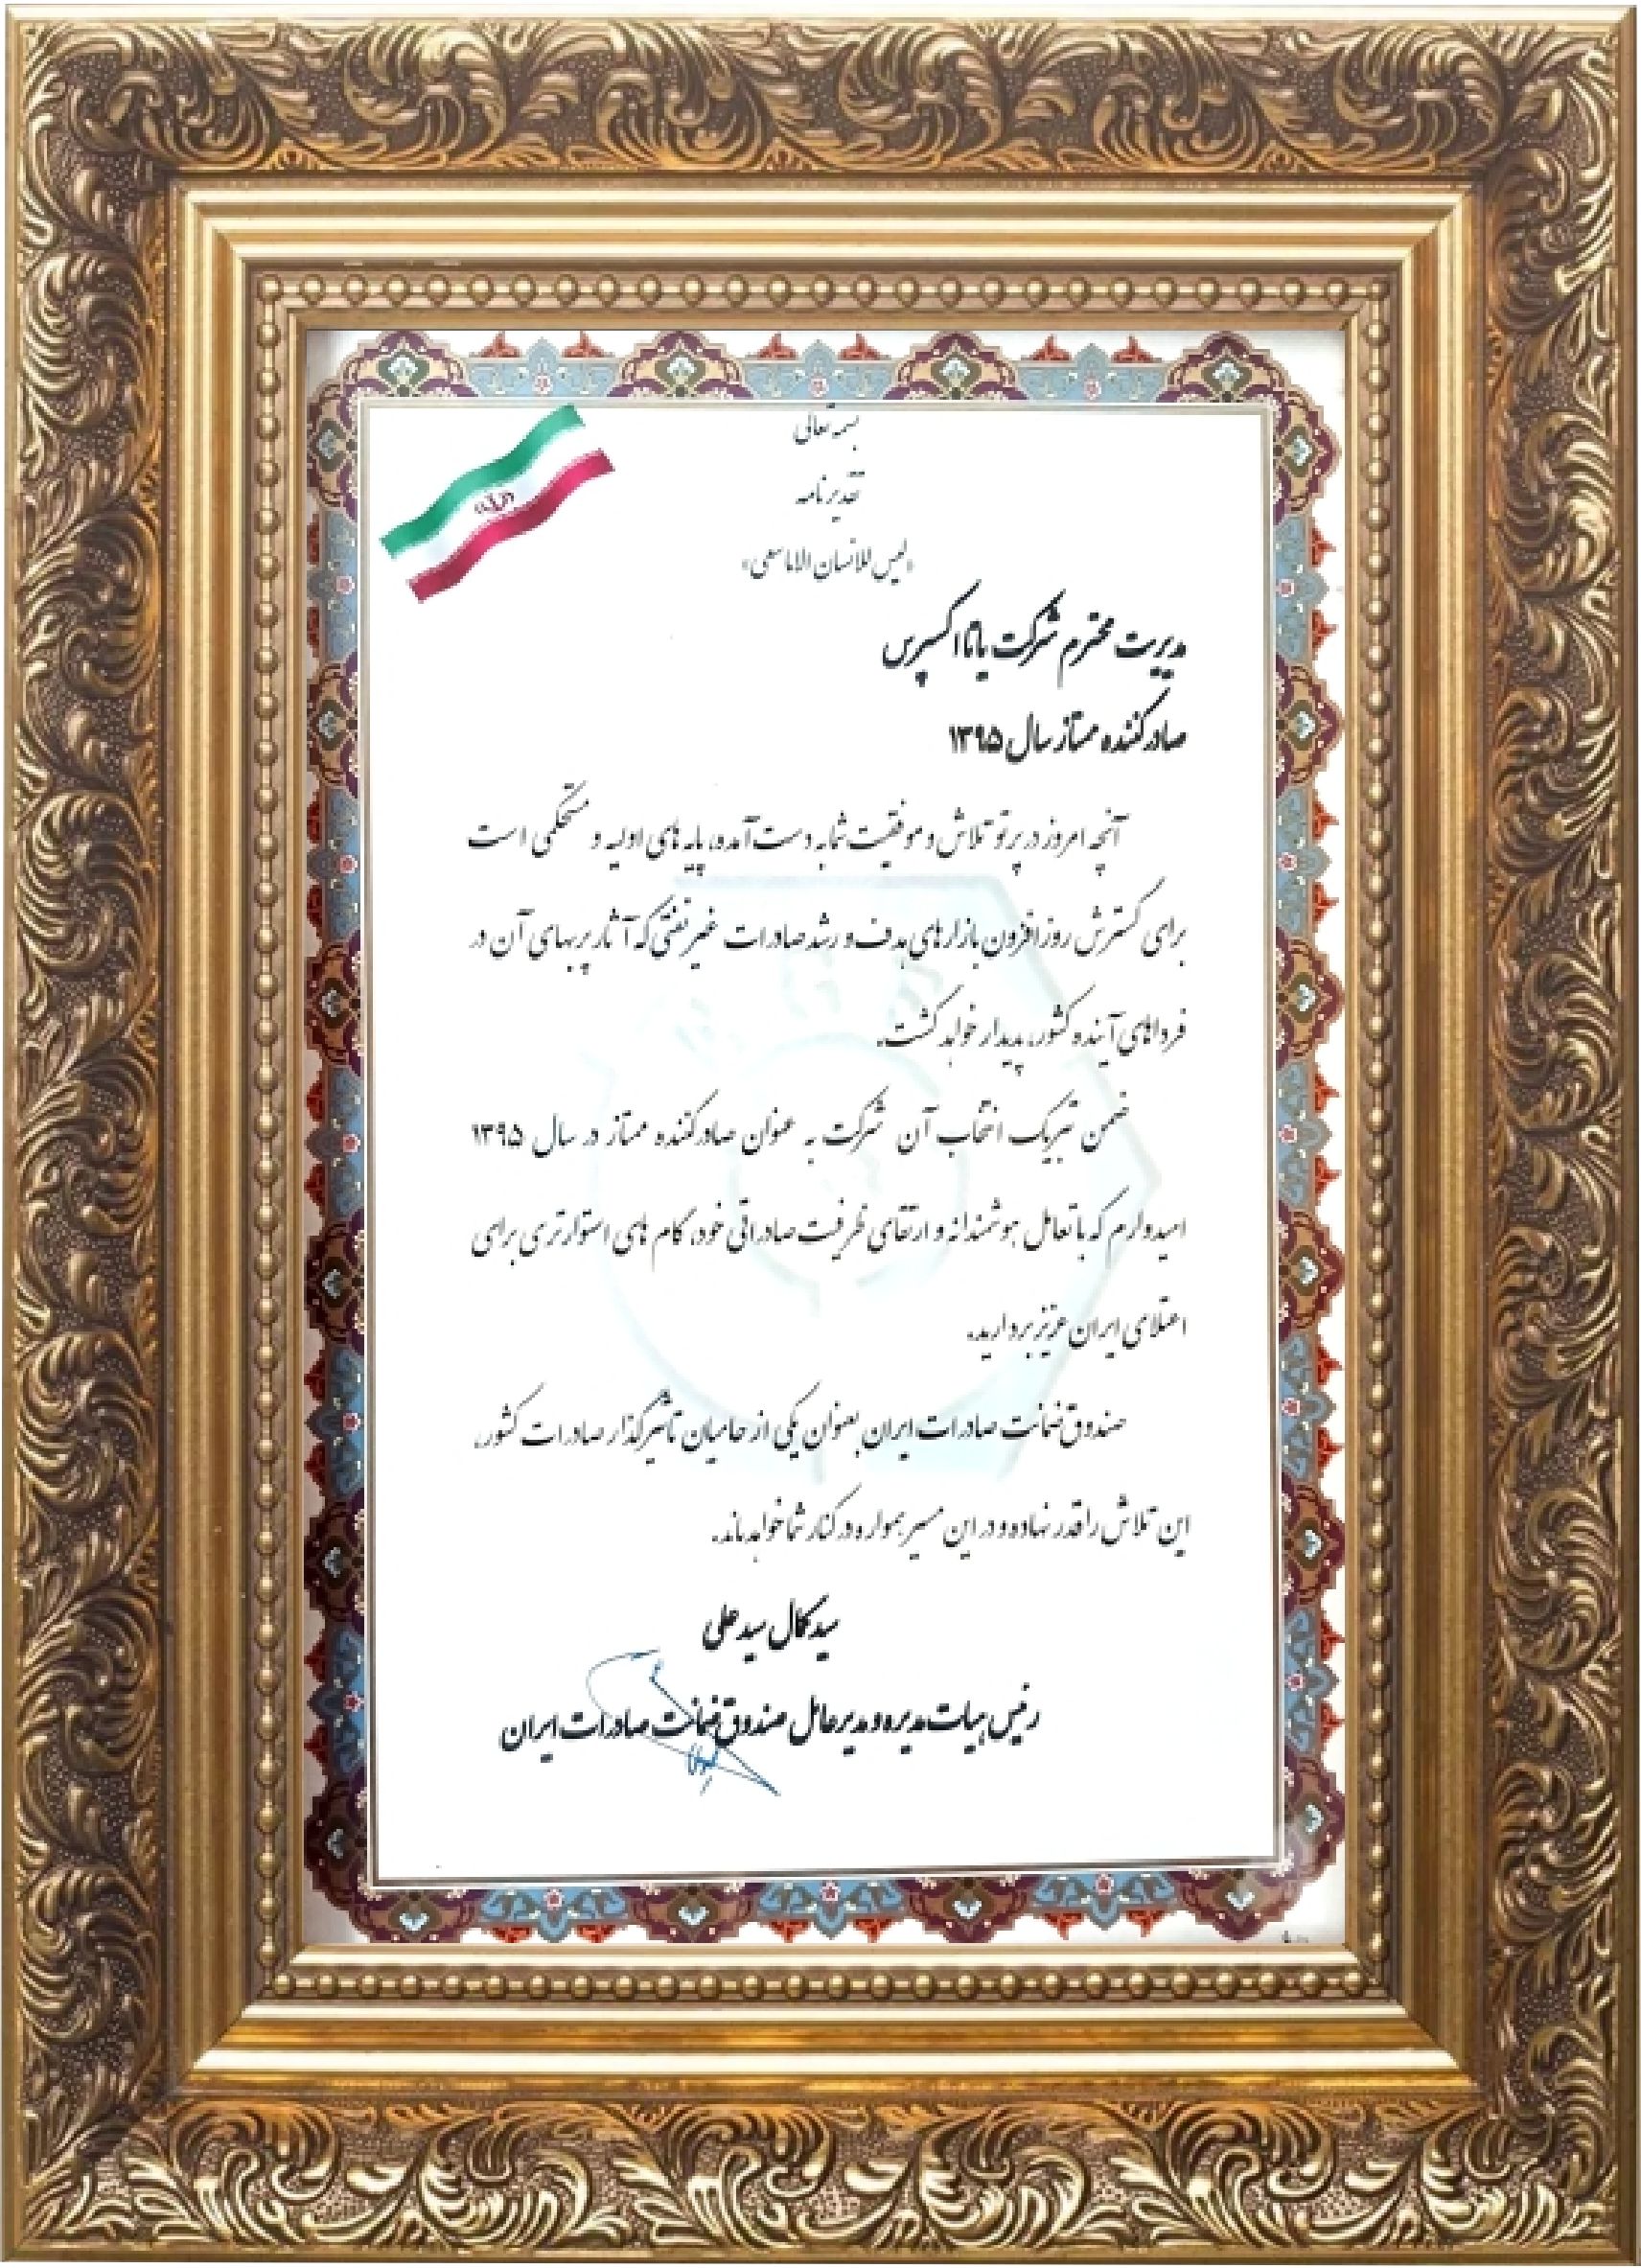 بسمه تعالی
تقدیرنامه
«لیس للانسان الا ما سعی»
مدیریت محترم شرکت یانا اکسپرس
صادرکننده ممتاز سال ۱۳۹۵
آنچه امروز در پرتو تلاش و موفقیت شما به دست آمده، پایه های اولیه و مستحکمی است
برای گسترش روزافزون بازارهای هدف و رشد صادرات غیرنفتی که آثار پربهای آن در
فرداهای آینده کشور، پدیدار خواهد گشت.
ضمن تبریک انتخاب آن شرکت به عنوان صادرکننده ممتاز در سال ۱۳۹۵
امیدوارم که با تعامل هوشمندانه و ارتقای ظرفیت صادراتی خود، گام های استوارتری برای
اعتلای ایران عزیز بردارید.
صندوق ضمانت صادرات ایران بعنوان یکی از حامیان تاثیرگذار صادرات کشور،
این تلاش را قدر نهاده و در این مسیر همواره در کنار شما خواهد ماند.
سید کمال سید علی
رئیس هیات مدیره و مدیرعامل صندوق ضمانت صادرات ایران